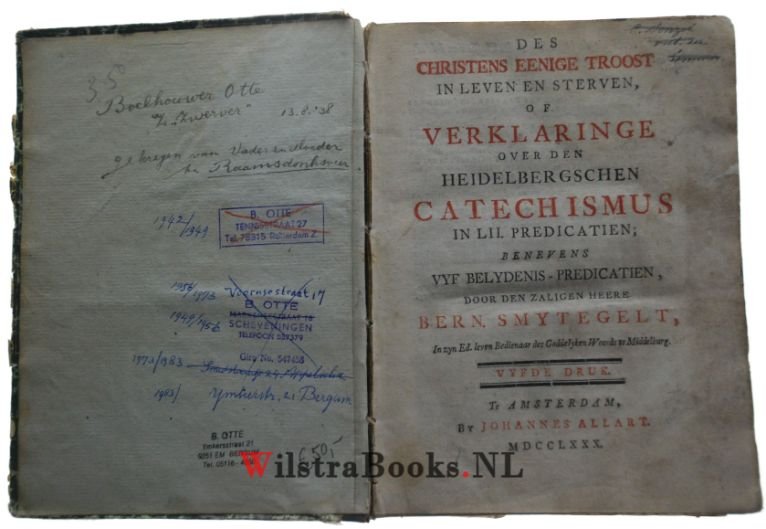 35
Boekhouwer Otte
Z. "Zwerver" 13.8.'38
gekregen van Vader en Moeder
te Raamsdonksveer
1942/1949
B. OTTE
TENNISSTRAAT 27
Tel. 75315 Rotterdam Z.
1956/1973 Voornsestraat 17
B. OTTE
1949/1956
SCHEVENINGEN
TELEFOON 557379
Giro No. 547458
1973/1983
1983/ Ymkerstr. 21 Bergum
B. OTTE
Ymkersstraat 21
9251 EM BERGUM
Tel. 05116 -
€ 50,-
DES
CHRISTENS EENIGE TROOST
IN LEVEN EN STERVEN,
OF
VERKLARINGE
OVER DEN
HEIDELBERGSCHEN
CATECHISMUS
IN LII. PREDICATIEN;
BENEVENS
VYF BELYDENIS-PREDICATIEN,
DOOR DEN ZALIGEN HEERE
BERN. SMYTEGELT,
In zyn Ed. leven Bedienaar des Goddelyken Woords te Middelburg.
VYFDE DRUK.
Te AMSTERDAM,
By JOHANNES ALLART.
MDCCLXXX.
WilstraBooks.NL